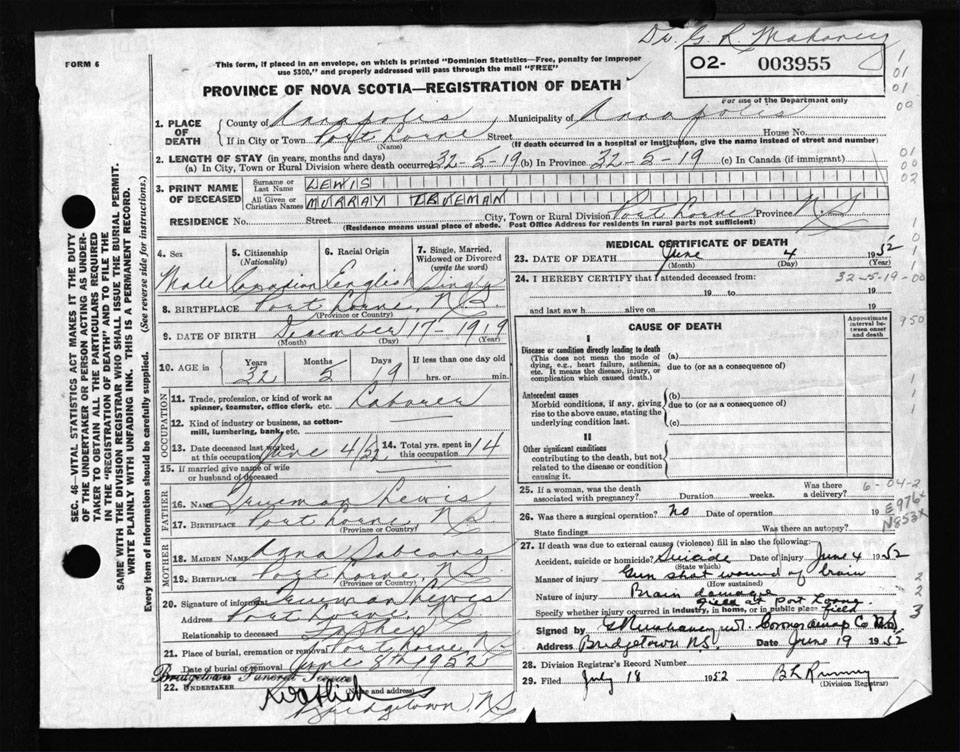 Dr. G. R. Mahaney
FORM 6
This form, if placed in an envelope, on which is printed "Dominion Statistics—Free, penalty for improper
use $300," and properly addressed will pass through the mail "FREE"
O2- 003955
For use of the Department only
PROVINCE OF NOVA SCOTIA—REGISTRATION OF DEATH
1. PLACE OF DEATH
County of Annapolis Municipality of Annapolis
If in City or Town Port Lorne Street House No.
(Name) (If death occurred in a hospital or institution, give the name instead of street and number)
2. LENGTH OF STAY (in years, months and days)
(a) In City, Town or Rural Division where death occurred 32-5-19 (b) In Province 32-5-19 (c) In Canada (if immigrant)
3. PRINT NAME OF DECEASED
Surname or Last Name LEWIS
All Given or Christian Names MURRAY
RESIDENCE No. Street City, Town or Rural Division Port Lorne Province N.S
(Residence means usual place of abode. Post Office Address for residents in rural parts not sufficient)
4. Sex
Male
5. Citizenship (Nationality)
Canadian
6. Racial Origin
English
7. Single, Married, Widowed or Divorced (write the word)
Single
8. BIRTHPLACE Port Lorne, N.S.
(Province or Country)
9. DATE OF BIRTH December 17-1919
(Month) (Day) (Year)
10. AGE in
Years Months Days If less than one day old
32 5 19 hrs. or min.
OCCUPATION
11. Trade, profession, or kind of work as spinner, teamster, office clerk, etc. Laborer
12. Kind of industry or business, as cotton-mill, lumbering, bank, etc.
13. Date deceased last worked at this occupation June 4/52
14. Total yrs. spent in this occupation 14
15. If married give name of wife or husband of deceased
FATHER
16. Name Trueman Lewis
17. Birthplace Port Lorne, N.S.
(Province or Country)
MOTHER
18. Maiden Name
19. Birthplace Port Lorne, N.S.
(Province or Country)
20. Signature of informant Trueman Lewis
Address Port Lorne, N.S.
Relationship to deceased Father
21. Place of burial, cremation or removal Port Lorne, N.S
Date of burial or removal June 8th 1952
Bridgetown Funeral Service
22. UNDERTAKER
(Name and address)
Bridgetown, N.S
MEDICAL CERTIFICATE OF DEATH
23. DATE OF DEATH June 4 1952
(Month) (Day) (Year)
24. I HEREBY CERTIFY that I attended deceased from: 32-5-19-00
19 to 19
and last saw h alive on 19
CAUSE OF DEATH
Approximate interval between onset and death
I
Disease or condition directly leading to death (a)
(This does not mean the mode of dying, e.g., heart failure, asthenia, etc. It means the disease, injury, or complication which caused death.)
due to (or as a consequence of)
Antecedent causes (b)
Morbid conditions, if any, giving rise to the above cause, stating the underlying condition last.
due to (or as a consequence of)
(c)
II
Other significant conditions
contributing to the death, but not related to the disease or condition causing it.
25. If a woman, was the death associated with pregnancy? Duration weeks. Was there a delivery?
6-04-2
26. Was there a surgical operation? No Date of operation 19
State findings Was there an autopsy?
E976x
N853x
27. If death was due to external causes (violence) fill in also the following:
Accident, suicide or homicide? Suicide Date of injury June 4 1952
(State which)
Manner of injury Gun shot wound of brain
(How sustained)
Nature of injury Brain damage
field at Port Lorne.
Specify whether injury occurred in industry, in home, or in public place field
Signed by
Address Bridgetown N.S. Date June 19 1952
28. Division Registrar's Record Number
29. Filed July 18 1952
(Division Registrar)
SEC. 46—VITAL STATISTICS ACT MAKES IT THE DUTY
OF THE UNDERTAKER OR PERSON ACTING AS UNDER-
TAKER TO OBTAIN ALL THE PARTICULARS REQUIRED
IN THE "REGISTRATION OF DEATH" AND TO FILE THE
SAME WITH THE DIVISION REGISTRAR WHO SHALL ISSUE THE BURIAL PERMIT.
WRITE PLAINLY WITH UNFADING INK. THIS IS A PERMANENT RECORD.
Every item of information should be carefully supplied. (See reverse side for instructions.)